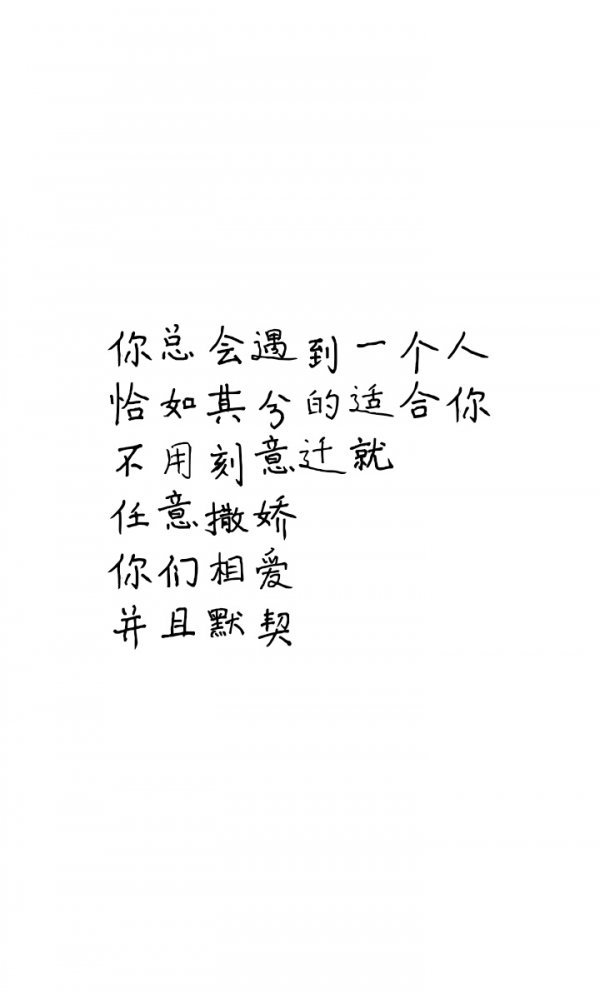 你总会遇到一个人
恰如其分的适合你
不用刻意迁就
任意撒娇
你们相爱
并且默契